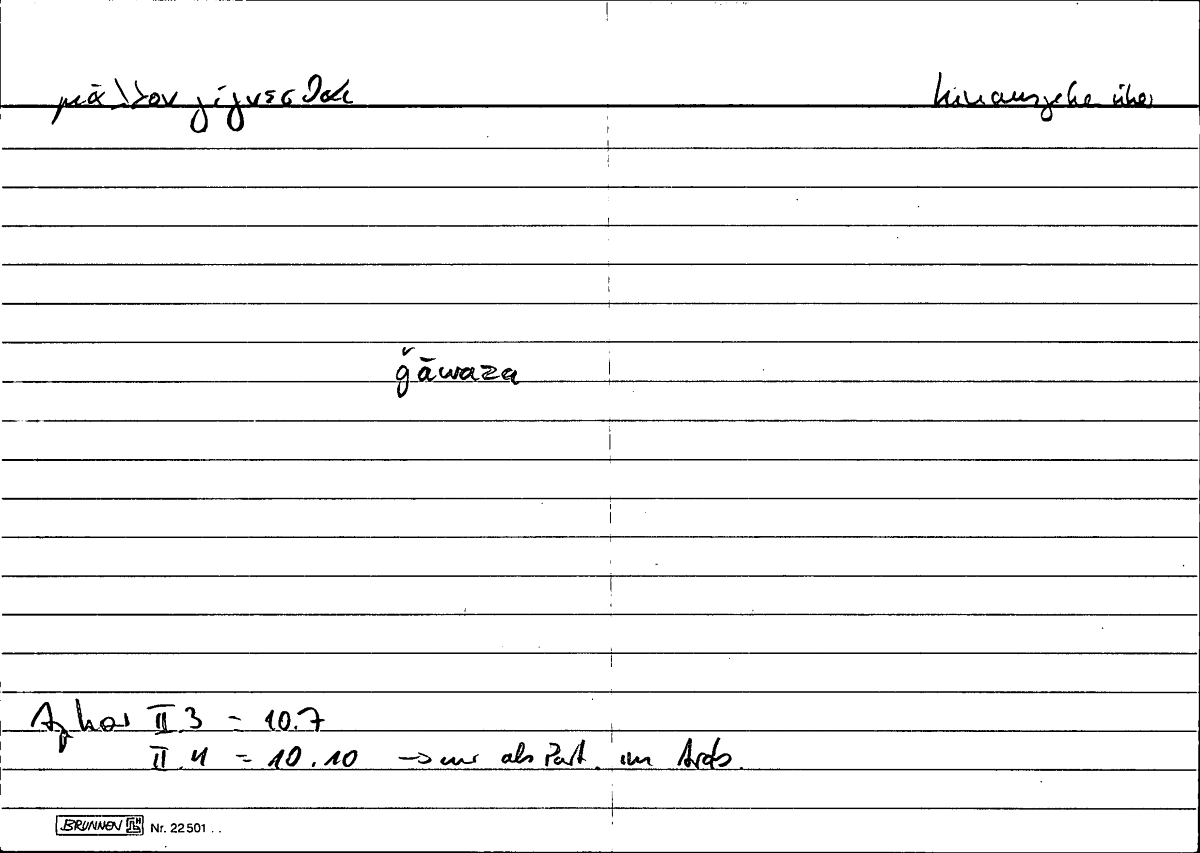 μᾶλλον γίγνεσθαι hinausgehen über
ǧāwaza
Aphor II.3 = 10.7
II.4 = 10.10 → nur als Part. im Arab.
BRUNNEN Nr. 22501 ..